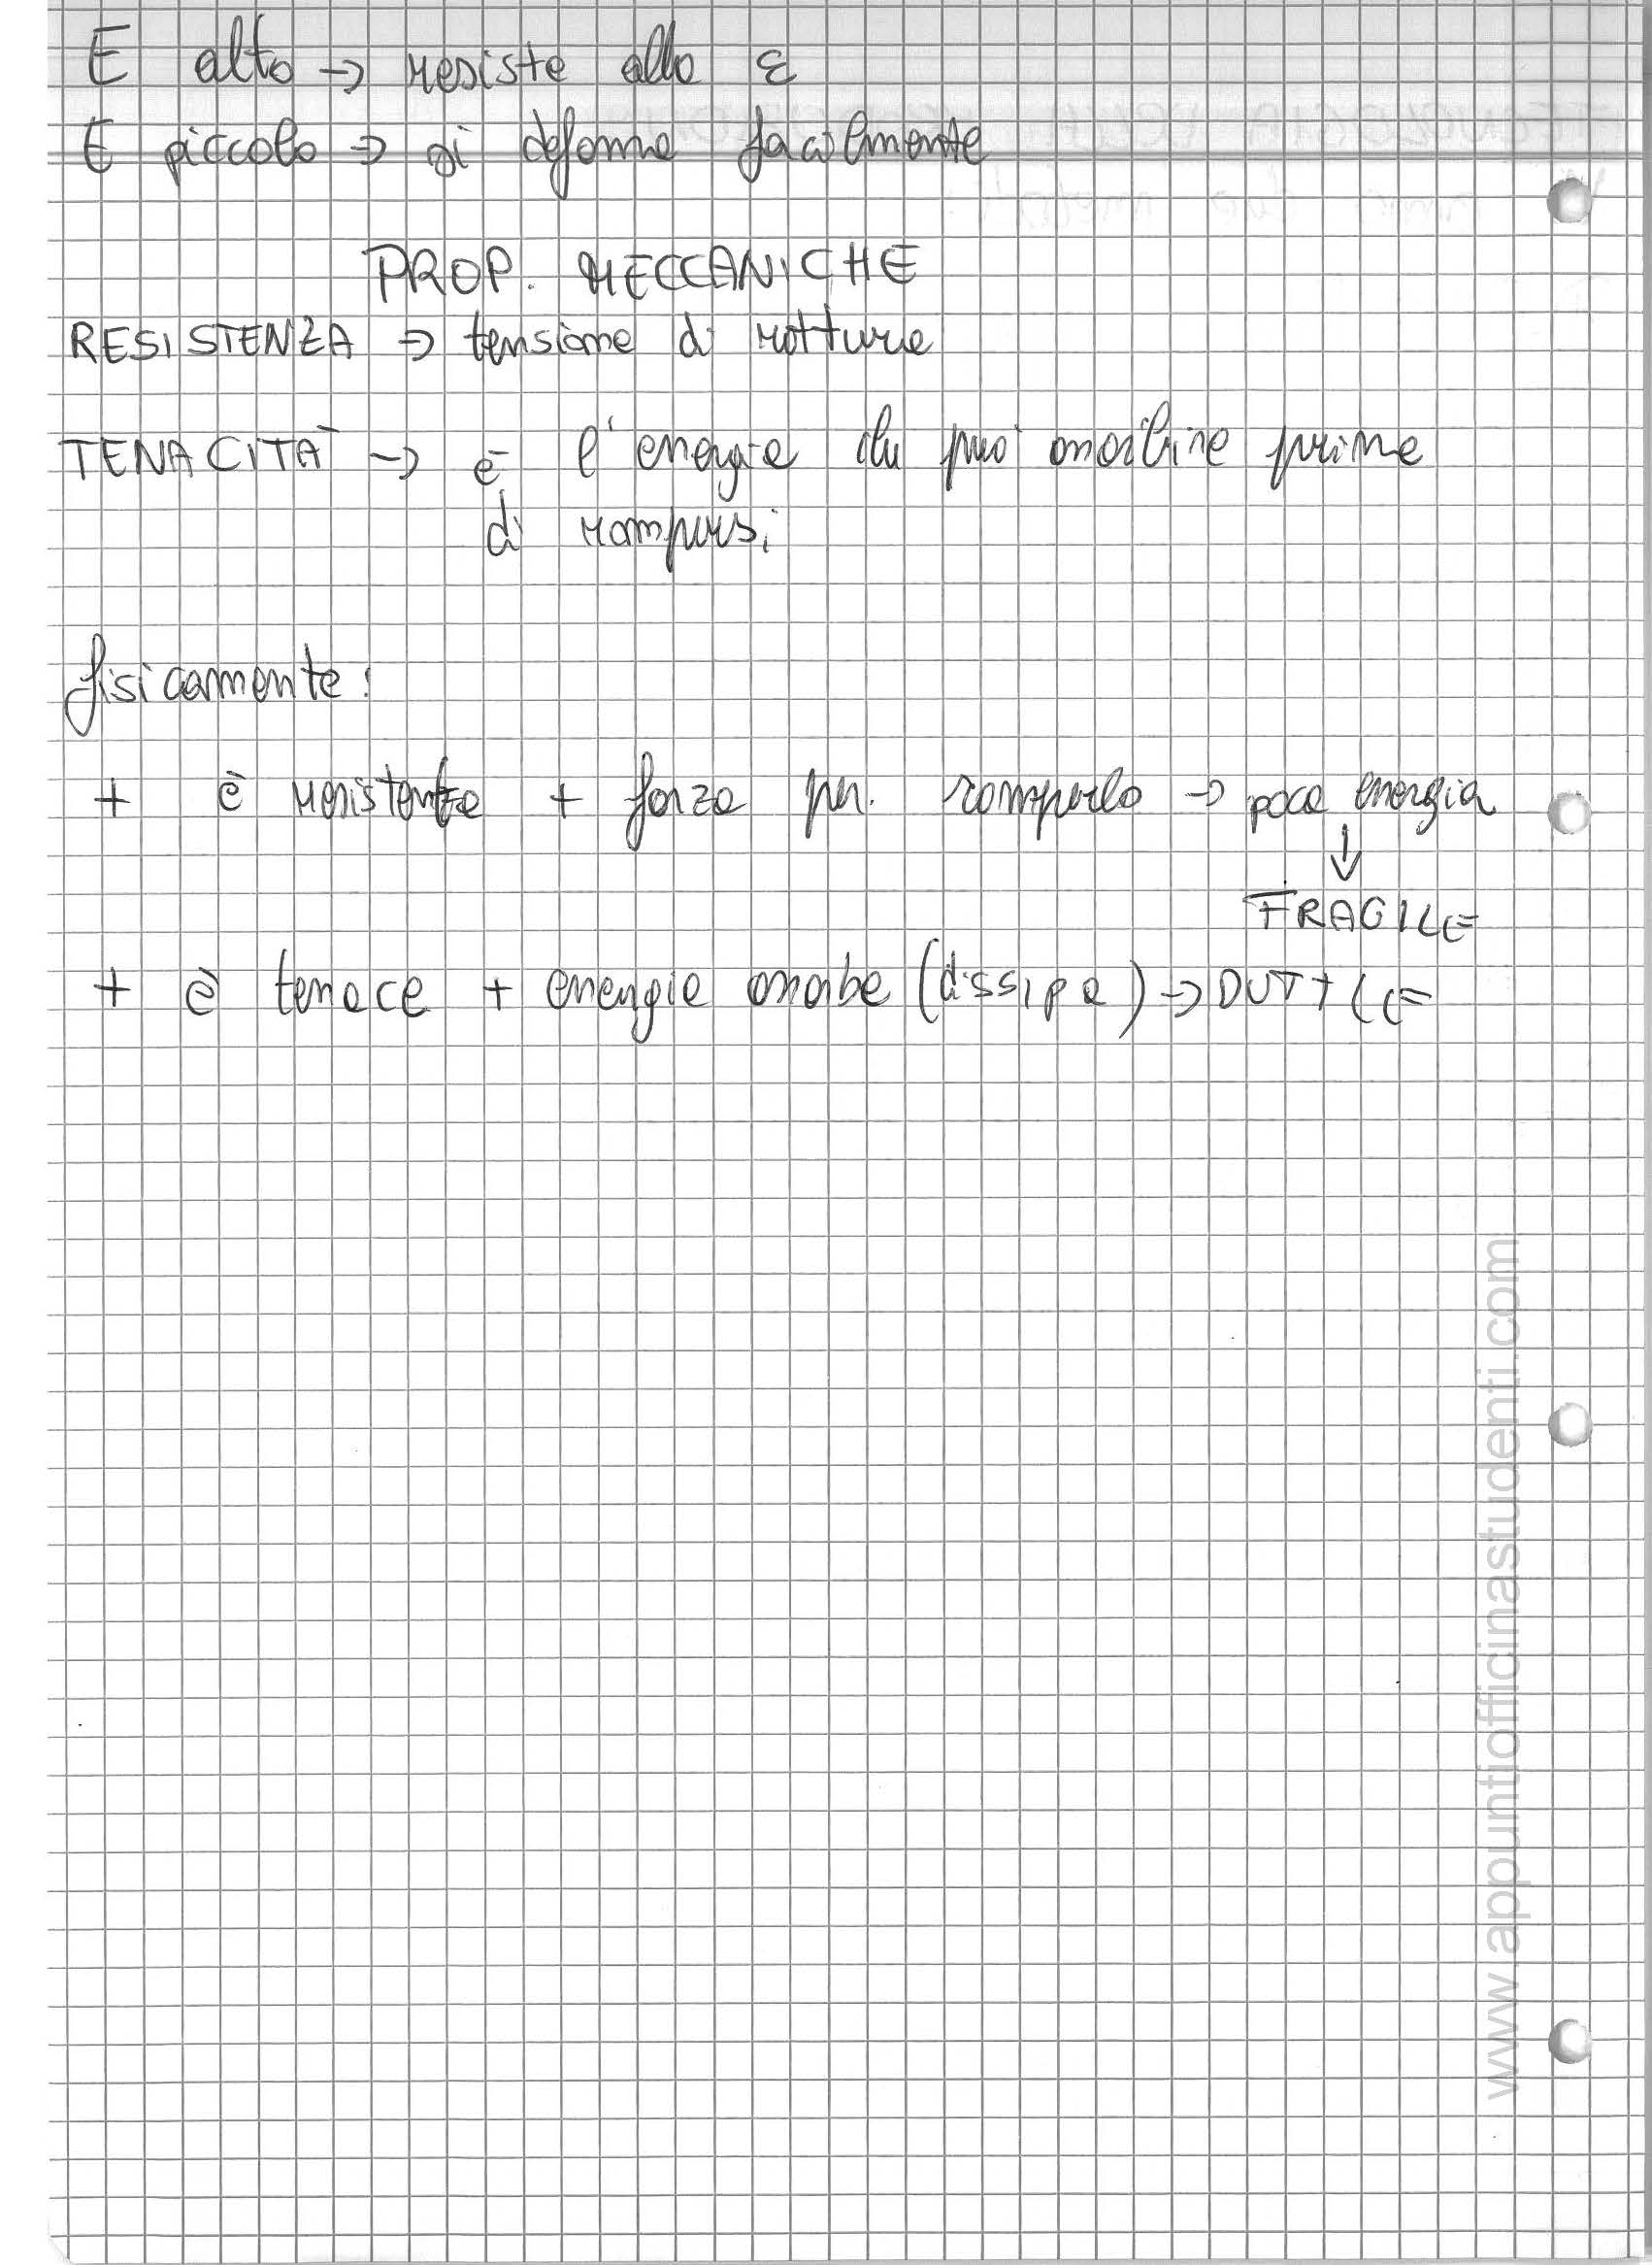 E alto → resiste alla ε
E piccolo → si deforma facilmente
PROP. MECCANICHE
RESISTENZA → tensione di rottura
TENACITÀ → è l'energia che può assorbire prima
di rompersi
fisicamente:
+ è resistente + forza per romperlo → poca energia
↓
FRAGILE
+ è tenace + energia assorbe (dissipa) → DUTTILE
www.appuntiofficinastudenti.com